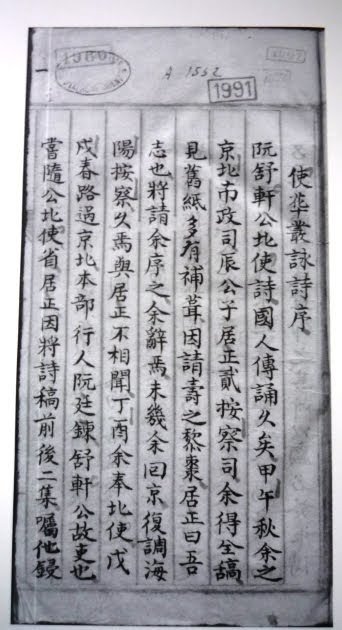 A 1552
1991
使華叢詠詩序
阮舒軒公北使詩國人傳誦久矣甲午秋余之
京北市政司辰公子居正貳按察司余得全稿
見舊紙多有補葺因請壽之黎棗居正曰吾
志也將請余序之余辭焉未幾余回京復調海
陽按察久焉與居正不相聞丁酉余奉北使戊
戌春路過京北本部行人阮廷鍊舒軒公故吏也
嘗隨公北使省居正因將詩稿前後二集囑他鋟